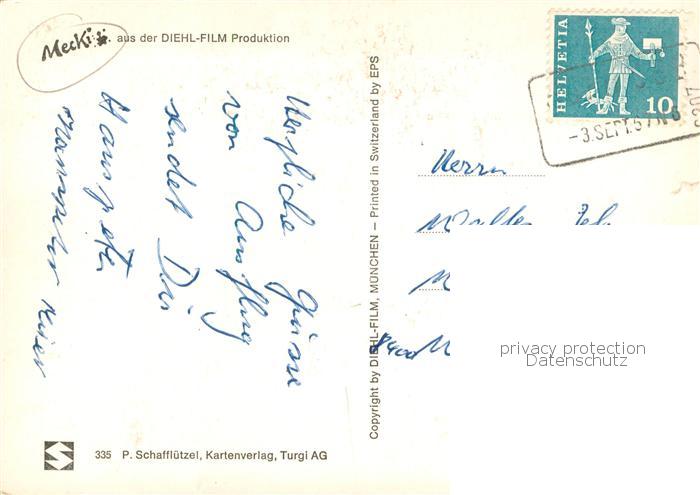 Mecki aus der DIEHL-FILM Produktion
Herzliche Grüsse
vom Ausflug
sendet Dir
Hanspeter
HELVETIA
10
-3. SEPT. 6
Copyright by DIEHL-FILM, MÜNCHEN — Printed in Switzerland by EPS
Herrn
Walter
8400
privacy protection
Datenschutz
335 P. Schafflützel, Kartenverlag, Turgi AG